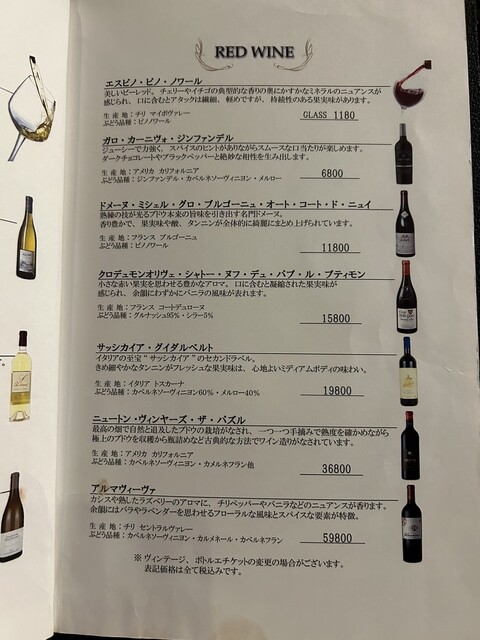 RED WINE
エスピノ・ピノ・ノワール
美しいビーレッド。チェリーやイチゴの典型的な香りの奥にかすかなミネラルのニュアンスが
感じられ、口に含むとアタックは繊細、軽めですが、持続性のある果実味があります。
生 産 地：チリ マイポヴァレー
ぶどう品種：ピノノワール
GLASS 1180
ガロ・カーニヴォ・ジンファンデル
ジューシーで力強く、スパイスのヒントがありながらスムースな口当たりが楽しめます。
ダークチョコレートやブラックペッパーと絶妙な相性を生み出します。
生 産 地：アメリカ カリフォルニア
ぶどう品種：ジンファンデル・カベルネソーヴィニヨン・メルロー
6800
ドメーヌ・ミシェル・グロ・ブルゴーニュ・オート・コート・ド・ニュイ
熟練の技が光るブドウ本来の旨味を引き出す名門ドメーヌ。
香り豊かで、果実味や酸、タンニンが全体的に綺麗にまとめ上げられています。
生 産 地：フランス ブルゴーニュ
ぶどう品種：ピノノワール
11800
クロデュモンオリヴェ・シャトー・ヌフ・デュ・パプ・ル・プティモン
小さな赤い果実を思わせる豊かなアロマ。口に含むと凝縮された果実味が
感じられ、余韻にわずかにバニラの風味が表れます。
生 産 地：フランス コートデュローヌ
ぶどう品種：グルナッシュ95%・シラー5%
15800
サッシカイア・グイダルベルト
イタリアの至宝“サッシカイア”のセカンドラベル。
きめ細やかなタンニンがフレッシュな果実味は、心地よいミディアムボディの味わい。
生 産 地：イタリア トスカーナ
ぶどう品種：カベルネソーヴィニヨン60%・メルロー40%
19800
ニュートン・ヴィンヤーズ・ザ・パズル
最高の畑で自然と追及したブドウの栽培がなされ、一つ一つ手摘みで熟度を確かめながら
極上のブドウを収穫から瓶詰めなど古典的な方法でワイン造りがなされています。
生 産 地：アメリカ カリフォルニア
ぶどう品種：カベルネソーヴィニヨン・カメルネフラン他
36800
アルマヴィーヴァ
カシスや熟したラズベリーのアロマに、チリペッパーやバニラなどのニュアンスが香ります。
余韻にはバラやラベンダーを思わせるフローラルな風味とスパイスな要素が特徴。
生 産 地：チリ セントラルヴァレー
ぶどう品種：カベルネソーヴィニヨン・カルメネール・カベルネフラン
59800
※ヴィンテージ、ボトルエチケットの変更の場合がございます。
表記価格は全て税込みです。